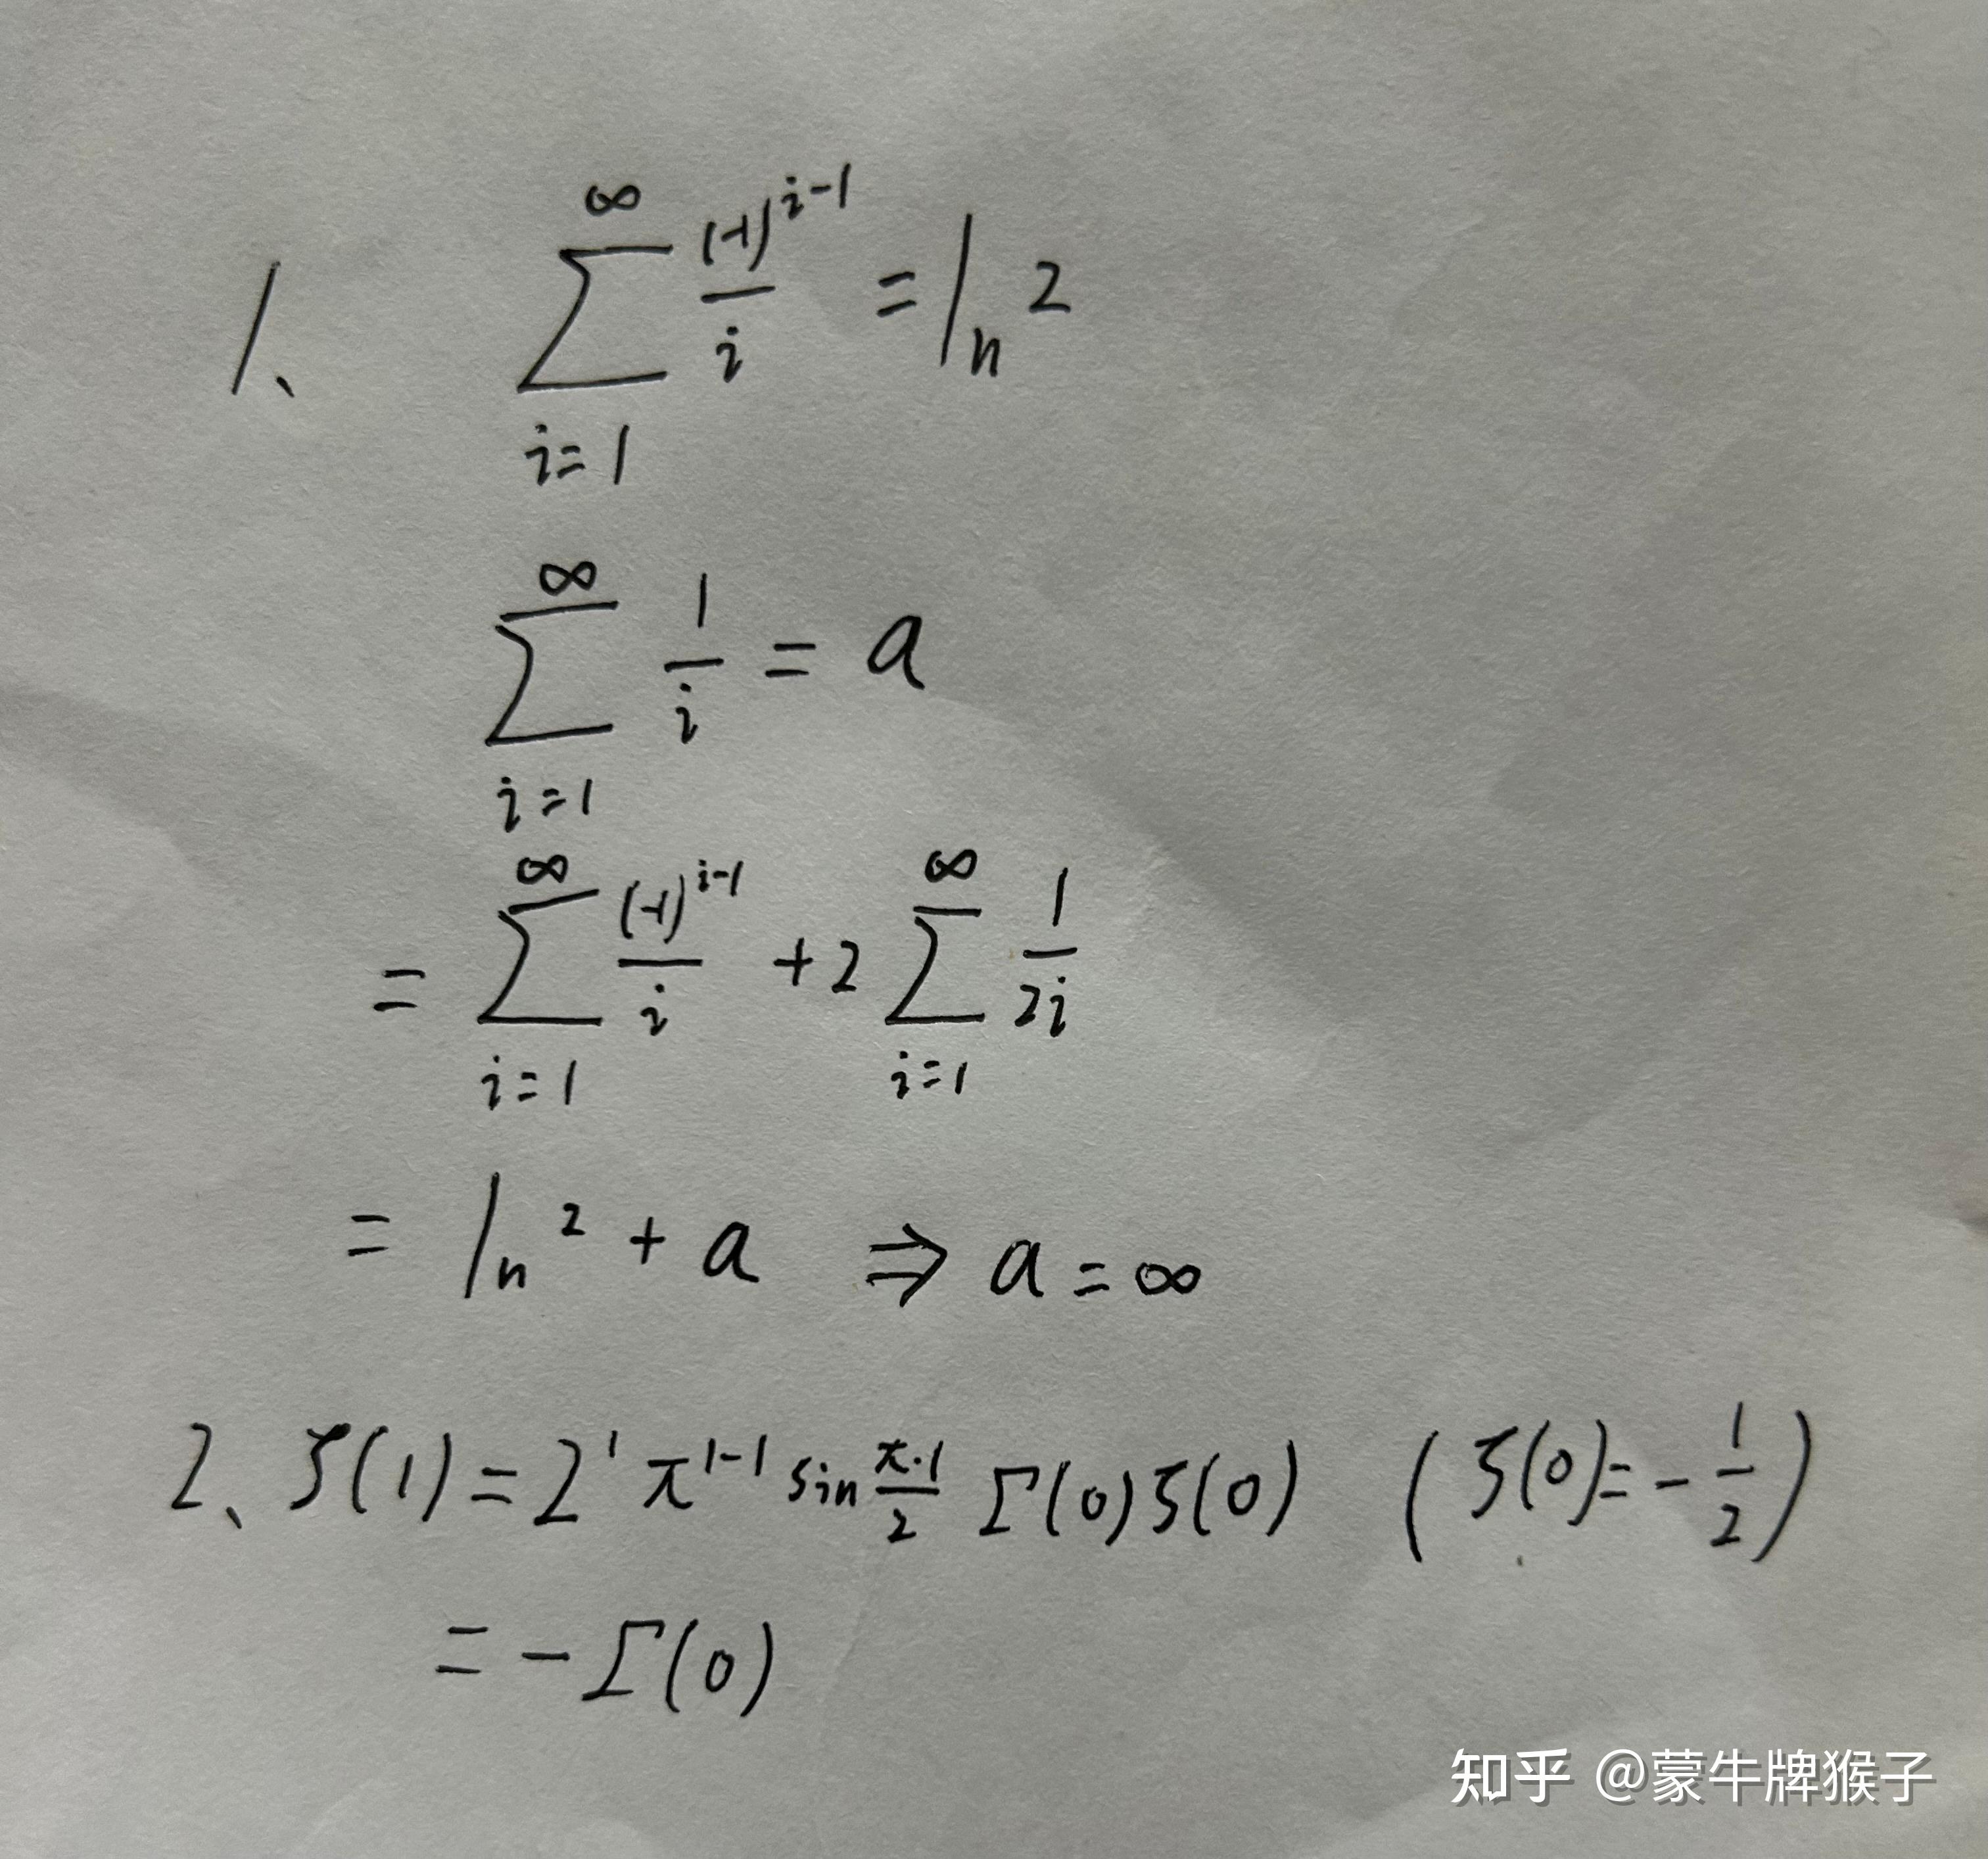 1、 \sum_{i=1}^{\infty} \frac{(-1)^{i-1}}{i} = ln 2
\sum_{i=1}^{\infty} \frac{1}{i} = a
= \sum_{i=1}^{\infty} \frac{(-1)^{i-1}}{i} + 2 \sum_{i=1}^{\infty} \frac{1}{2i}
= ln 2 + a ⇒ a = ∞
2、 ζ(1) = 2^1 π^{1-1} sin \frac{π·1}{2} Γ(0) ζ(0) ( ζ(0) = -\frac{1}{2} )
= - Γ(0)
知乎 @蒙牛牌猴子